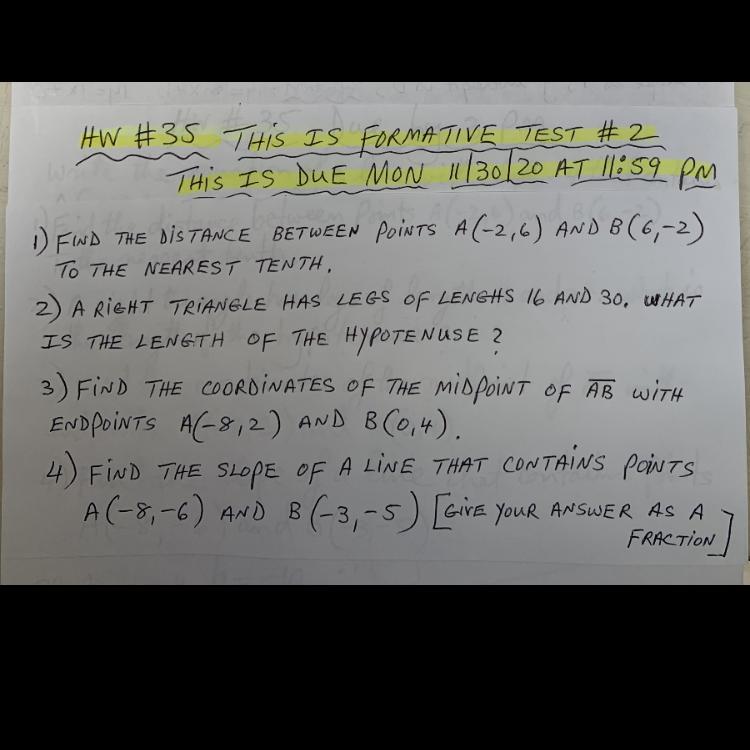 HW #35 THIS IS FORMATIVE TEST #2
THIS IS DUE MON 11/30/20 AT 11:59 PM
1) FIND THE DISTANCE BETWEEN POINTS A(-2,6) AND B(6,-2)
TO THE NEAREST TENTH.
2) A RIGHT TRIANGLE HAS LEGS OF LENGHS 16 AND 30. WHAT
IS THE LENGTH OF THE HYPOTENUSE?
3) FIND THE COORDINATES OF THE MIDPOINT OF A̅B̅ WITH
ENDPOINTS A(-8,2) AND B(0,4).
4) FIND THE SLOPE OF A LINE THAT CONTAINS POINTS
A(-8,-6) AND B(-3,-5) [GIVE YOUR ANSWER AS A
FRACTION]